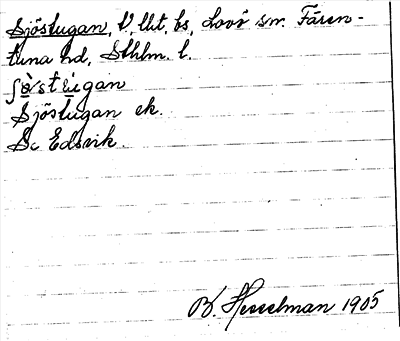 Sjöstugan, l, lht, bs, Lovö sn. Fären-
tuna hd, Sthlm. l.
Sjöstugan ek.
Sc Edsvik.
B. Hesselman 1905